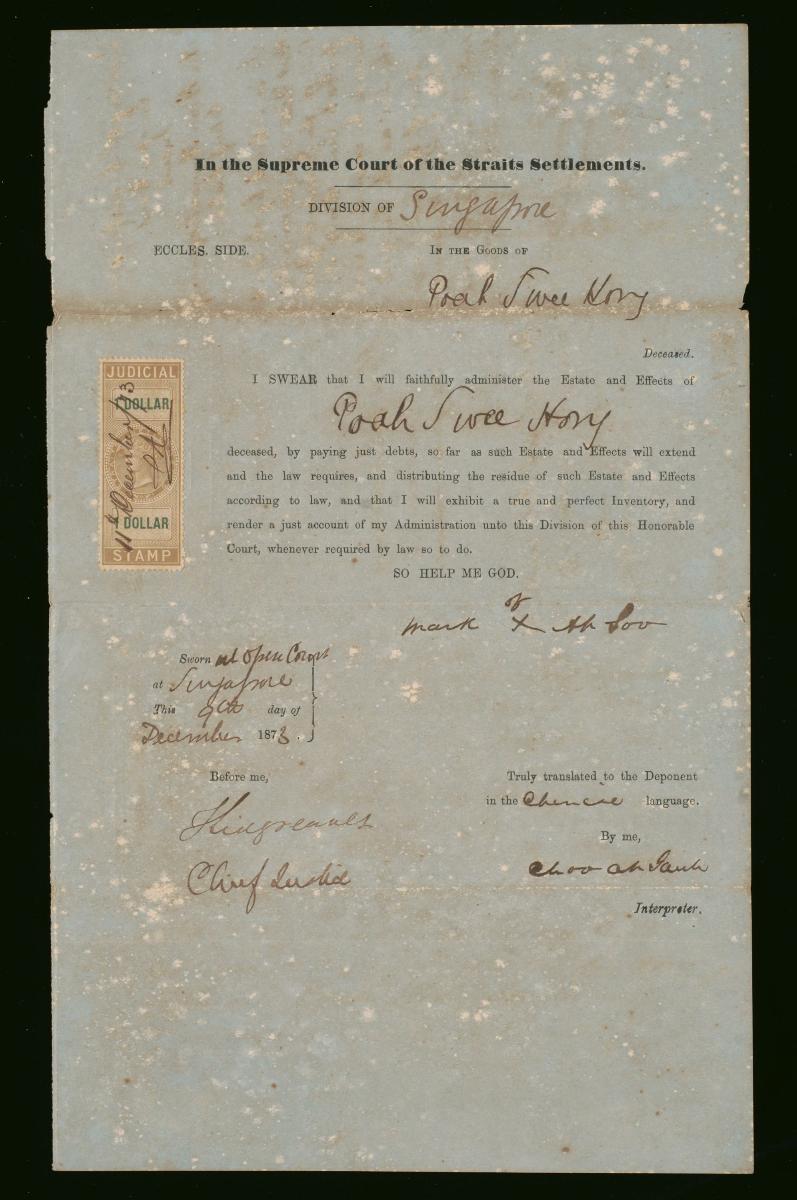 In the Supreme Court of the Straits Settlements.
DIVISION OF Singapore
ECCLES. SIDE.
IN THE GOODS OF
Poah Swee Hony
Deceased.
JUDICIAL
1 DOLLAR
11th December/73
1 DOLLAR
STAMP
I SWEAR that I will faithfully administer the Estate and Effects of
Poah Swee Hony
deceased, by paying just debts, so far as such Estate and Effects will extend
and the law requires, and distributing the residue of such Estate and Effects
according to law, and that I will exhibit a true and perfect Inventory, and
render a just account of my Administration unto this Division of this Honorable
Court, whenever required by law so to do.
SO HELP ME GOD.
mark of X Ah Soo
Sworn at Open Court
at Singapore
This 9th day of
December 1873.
Before me,
Chief Justice
Truly translated to the Deponent
in the Chinese language.
By me,
Choo Ah
Interpreter.